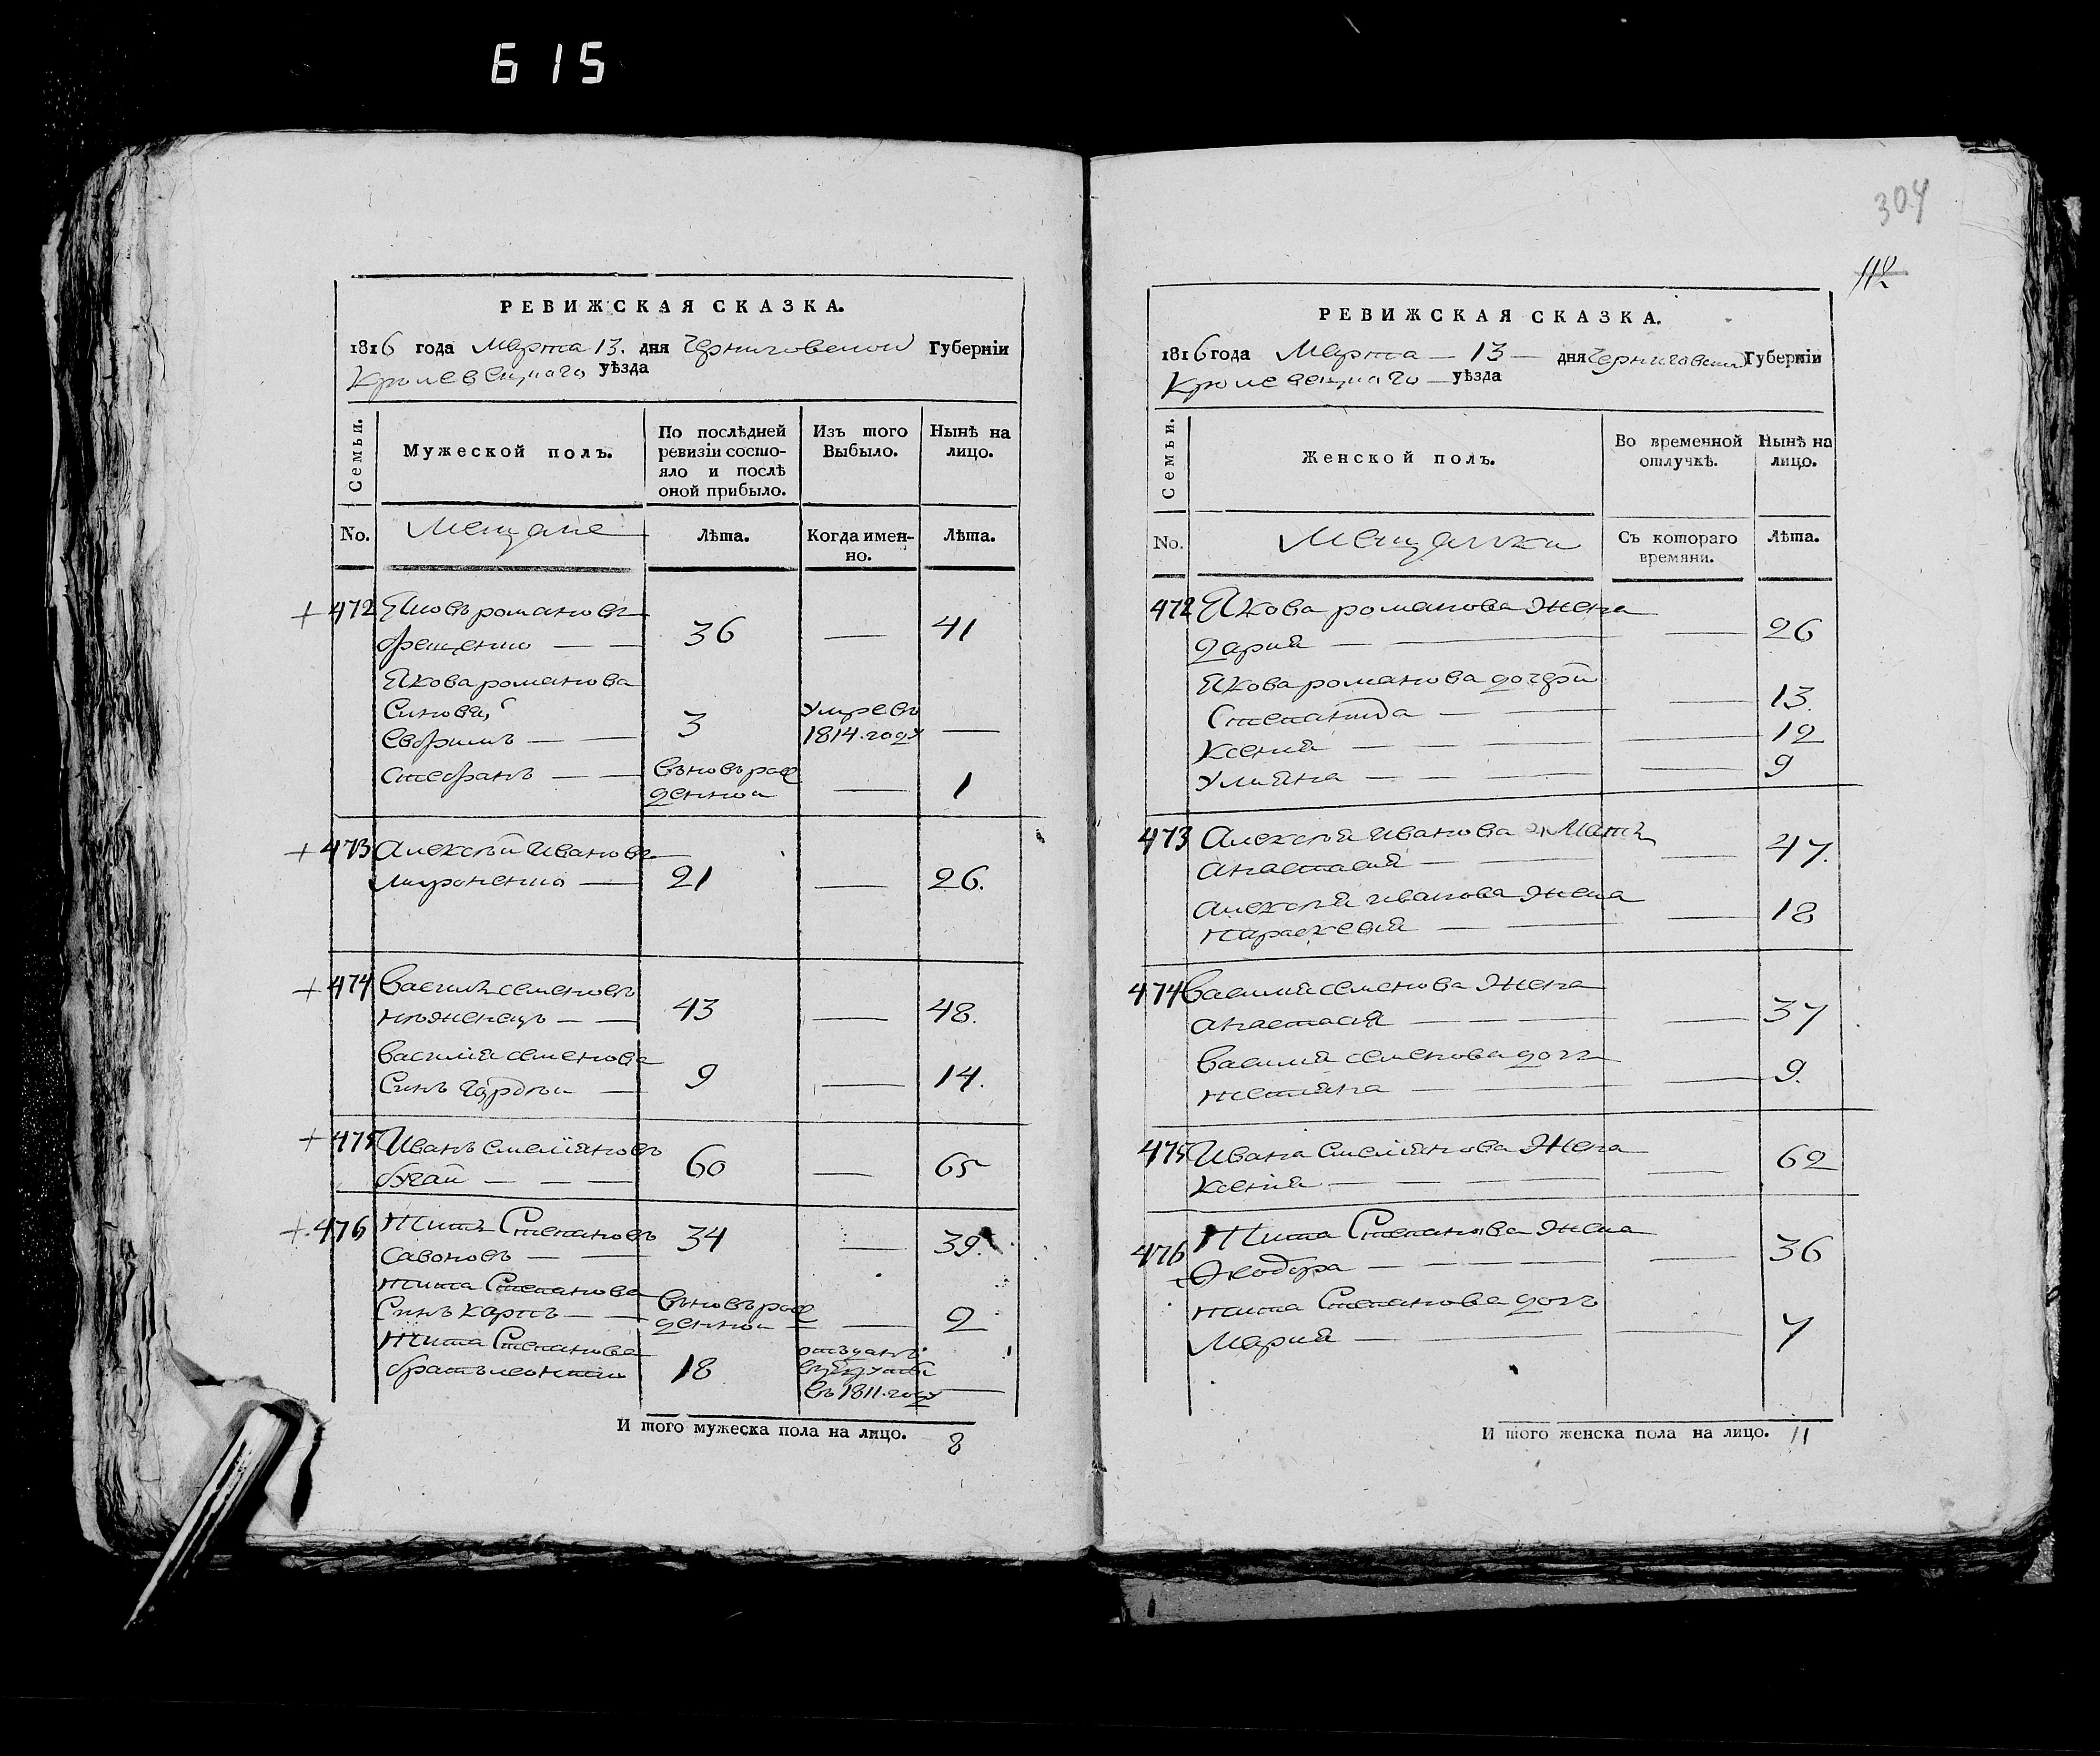 615
304
112
РЕВИЖСКАЯ СКАЗКА.
1816 года Марта 13. дня Черниговской Губерніи
Кролевецкаго уѣзда
Семьи.
Мужеской полъ.
По послѣдней ревизіи состояло и послѣ оной прибыло.
Изъ того Выбыло.
Нынѣ на лицо.
No.
Мещане
Лѣта.
Когда именно.
Лѣта.
472 Яковъ романовъ
36 — 41
Якова романова
Синовя,
Евфимъ — — 3 Умре въ 1814 году —
стефанъ — — вновь рожденной — 1
473 Алексѣй Ивановъ
мироненко — 21 — 26.
474 Василь семеновъ
43 — 48.
Василія семенова
Синъ Гордѣй — 9 — 14.
475 Иванъ емеліяновъ
— — — 60 — 65
476 Титъ Степановъ
савоновъ — — 34 — 39.
Тита Степанова
Синъ карпъ — — вновь рожденной — 2
Тита Степанова
братъ леонтій 18
въ 1811 году —
И того мужеска пола на лицо. 8
РЕВИЖСКАЯ СКАЗКА.
1816 года Марта — 13 — дня Черниговской Губерніи
Кролевецкаго — уѣзда
Семьи.
Женской полъ.
Во временной отлучкѣ.
Нынѣ на лицо.
No.
Мещанки
Съ котораго времяни.
Лѣта.
472 Якова романова Жена
дарія — — — 26
Якова романова дочери
Степанида — — — 13
Ксенія — — — — 12
Улияна — — — — 9
473 Алексѣя Иванова Мать
анастасія — — — 47.
Алексѣя иванова жена
параскевія — — — 18
474 Василія семенова Жена
анастасія — — — — 37
Василія семенова дочь
тетяна — — — 9.
475 Ивана Емеліянова Жена
ксенія — — — — — 62
476 Тита Степанова жена
Феодора — — — — — 36
Тита Степанова дочь
Марія — — — 7
И того женска пола на лицо. 11